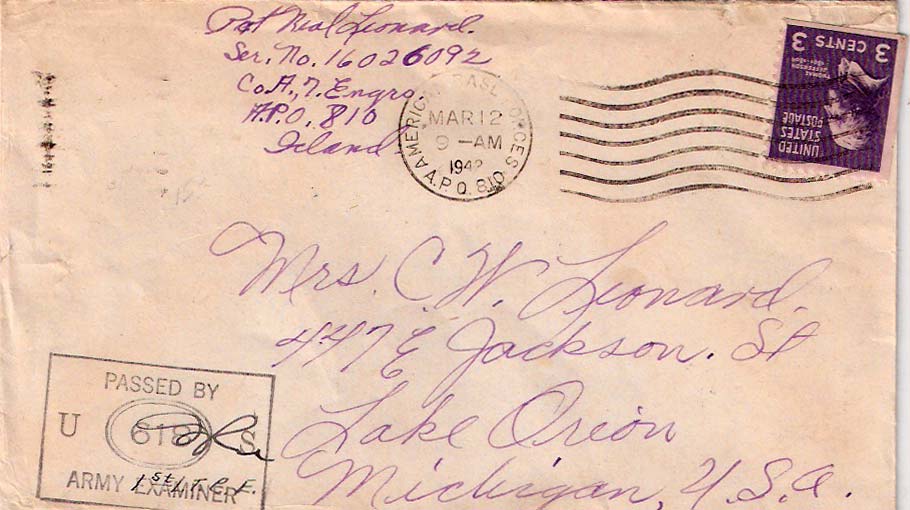 Pvt Neal Leonard.
Ser. No. 16026092
Co. A., 7. Engrs
A.P.O. 810
Island
AMERICAN BASE FORCES
MAR 12
9 —AM
1942
A.P.O. 810
3 CENTS 3
THOMAS
JEFFERSON
UNITED
STATES
POSTAGE
Mrs. C. W. Leonard.
447 E Jackson. St
Lake Orion
Michigan, U.S.A.
PASSED BY
U S
ARMY EXAMINER
1st LT. C.F.